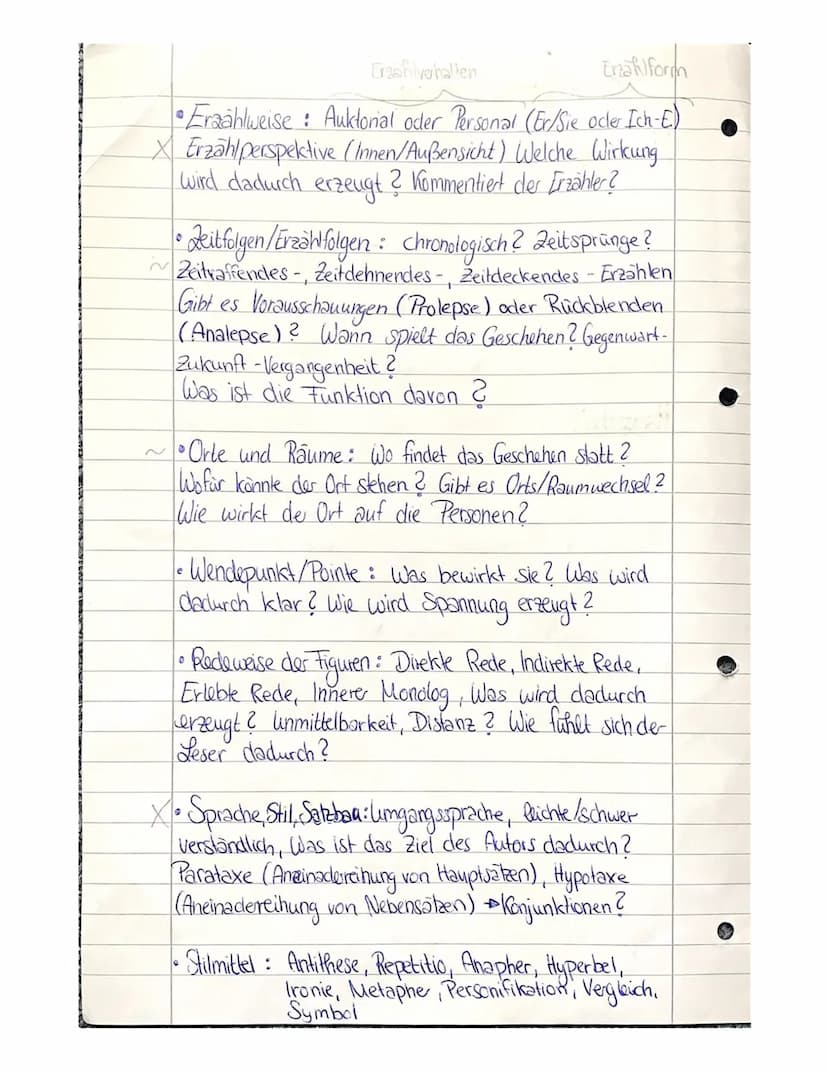 Erzählverhalten Erzählform
• Erzählweise : Auktorial oder Personal (Er/Sie oder Ich-E)
X Erzählperspektive (Innen/Außensicht) Welche Wirkung
wird dadurch erzeugt ? Kommentiert der Erzähler ?
• Zeitfolgen/Erzählfolgen : chronologisch ? Zeitsprünge ?
~ Zeitraffendes -, Zeitdehnendes -, Zeitdeckendes - Erzählen
Gibt es Vorausschauungen (Prolepse) oder Rückblenden
(Analepse) ? Wann spielt das Geschehen ? Gegenwart-
Zukunft - Vergangenheit ?
Was ist die Funktion davon ?
~ • Orte und Räume : Wo findet das Geschehen statt ?
Wofür könnte der Ort stehen ? Gibt es Orts/Raumwechsel ?
Wie wirkt de Ort auf die Personen ?
• Wendepunkt/Pointe : Was bewirkt sie ? Was wird
dadurch klar ? Wie wird Spannung erzeugt ?
• Redeweise der Figuren : Direkte Rede, Indirekte Rede,
Erlebte Rede, Innerer Monolog, Was wird dadurch
erzeugt ? Unmittelbarkeit, Distanz ? Wie fühlt sich de-
Leser dadurch ?
X • Sprache, Stil, Satzbau : Umgangssprache, leichte/schwer
verständlich, Was ist das Ziel des Autors dadurch ?
Parataxe (Aneinadereihung von Hauptsätzen), Hypotaxe
(Aneinadereihung von Nebensätzen) → Konjunktionen ?
• Stilmittel : Antithese, Repetitio, Anapher, Hyperbel,
Ironie, Metapher, Personifikation, Vergleich,
Symbol